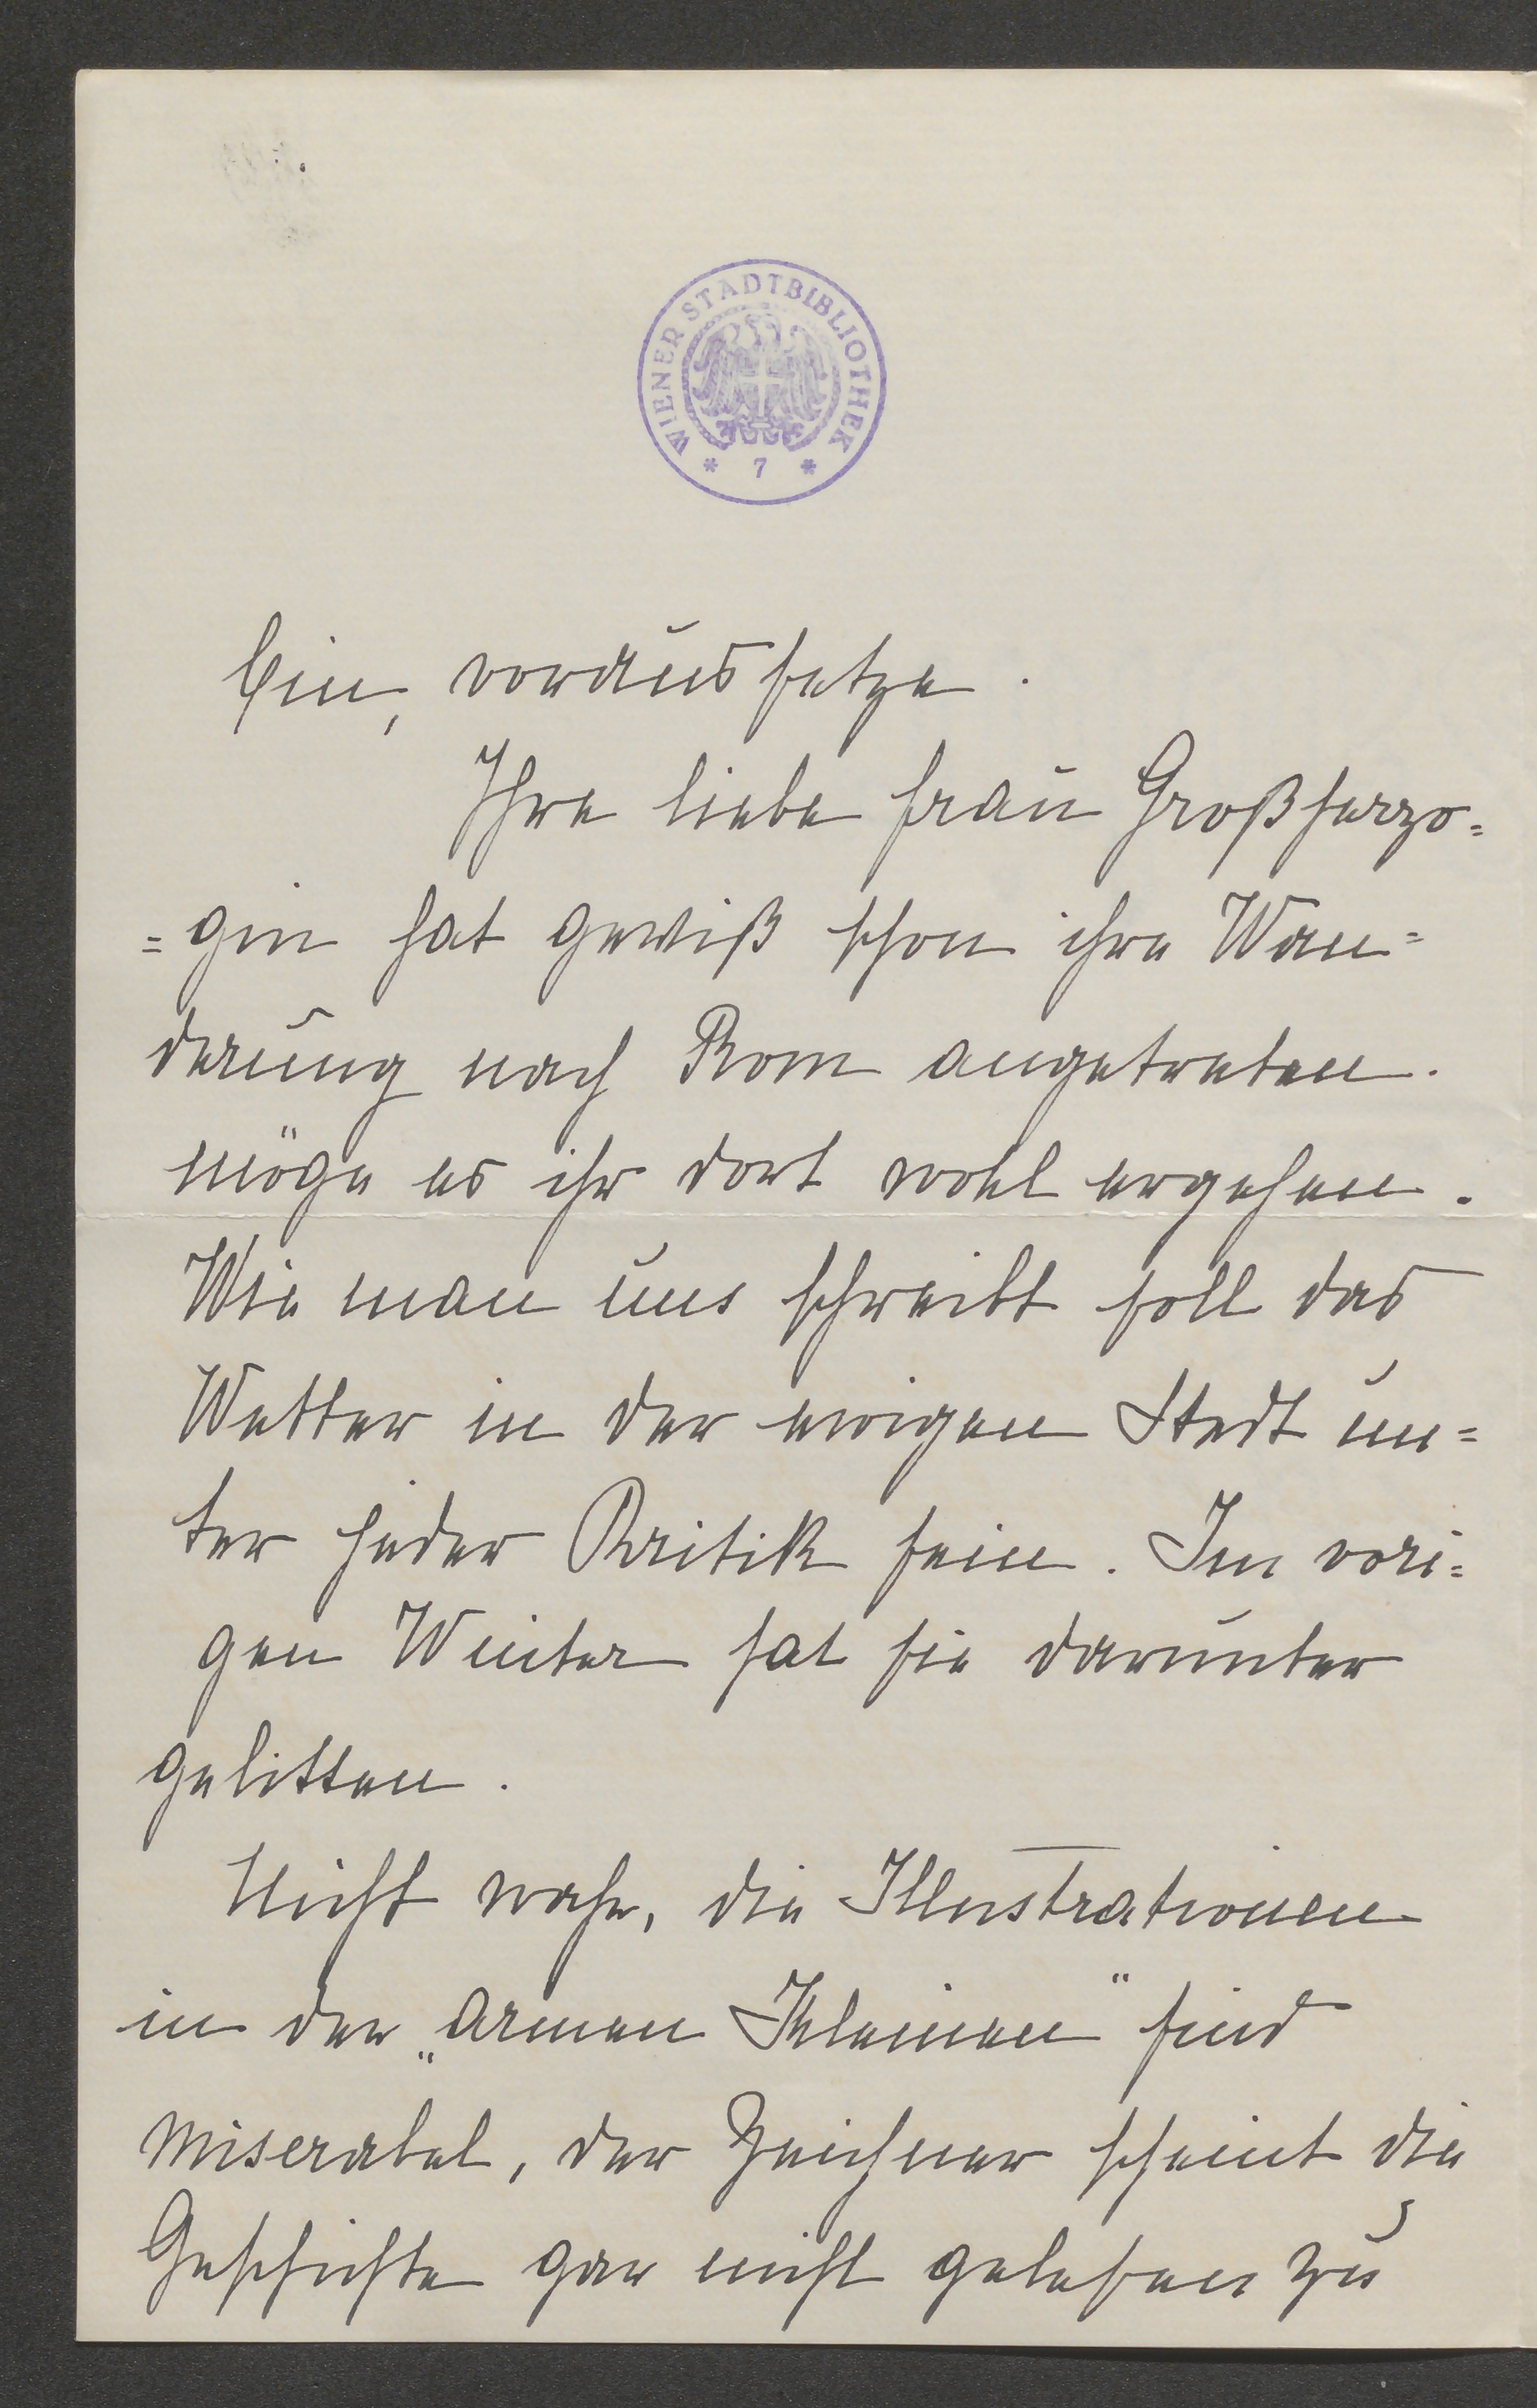 WIENER STADTBIBLIOTHEK
* 7 *
bin, voraussetze.
Ihre liebe Frau Großherzo=
=gin hat gewiß schon ihre Wan=
derung nach Rom angetreten.
möge es ihr dort wohl ergehen.
Wie man uns schreibt soll das
Wetter in der ewigen Stadt un=
ter jeder Kritik sein. Im vori=
gen Winter hat sie darunter
gelitten.
Nicht wahr, die Illustrationen
in der „armen Kleinen“ sind
miserabel, der Zeichner scheint die
Geschichte gar nicht gelesen zu